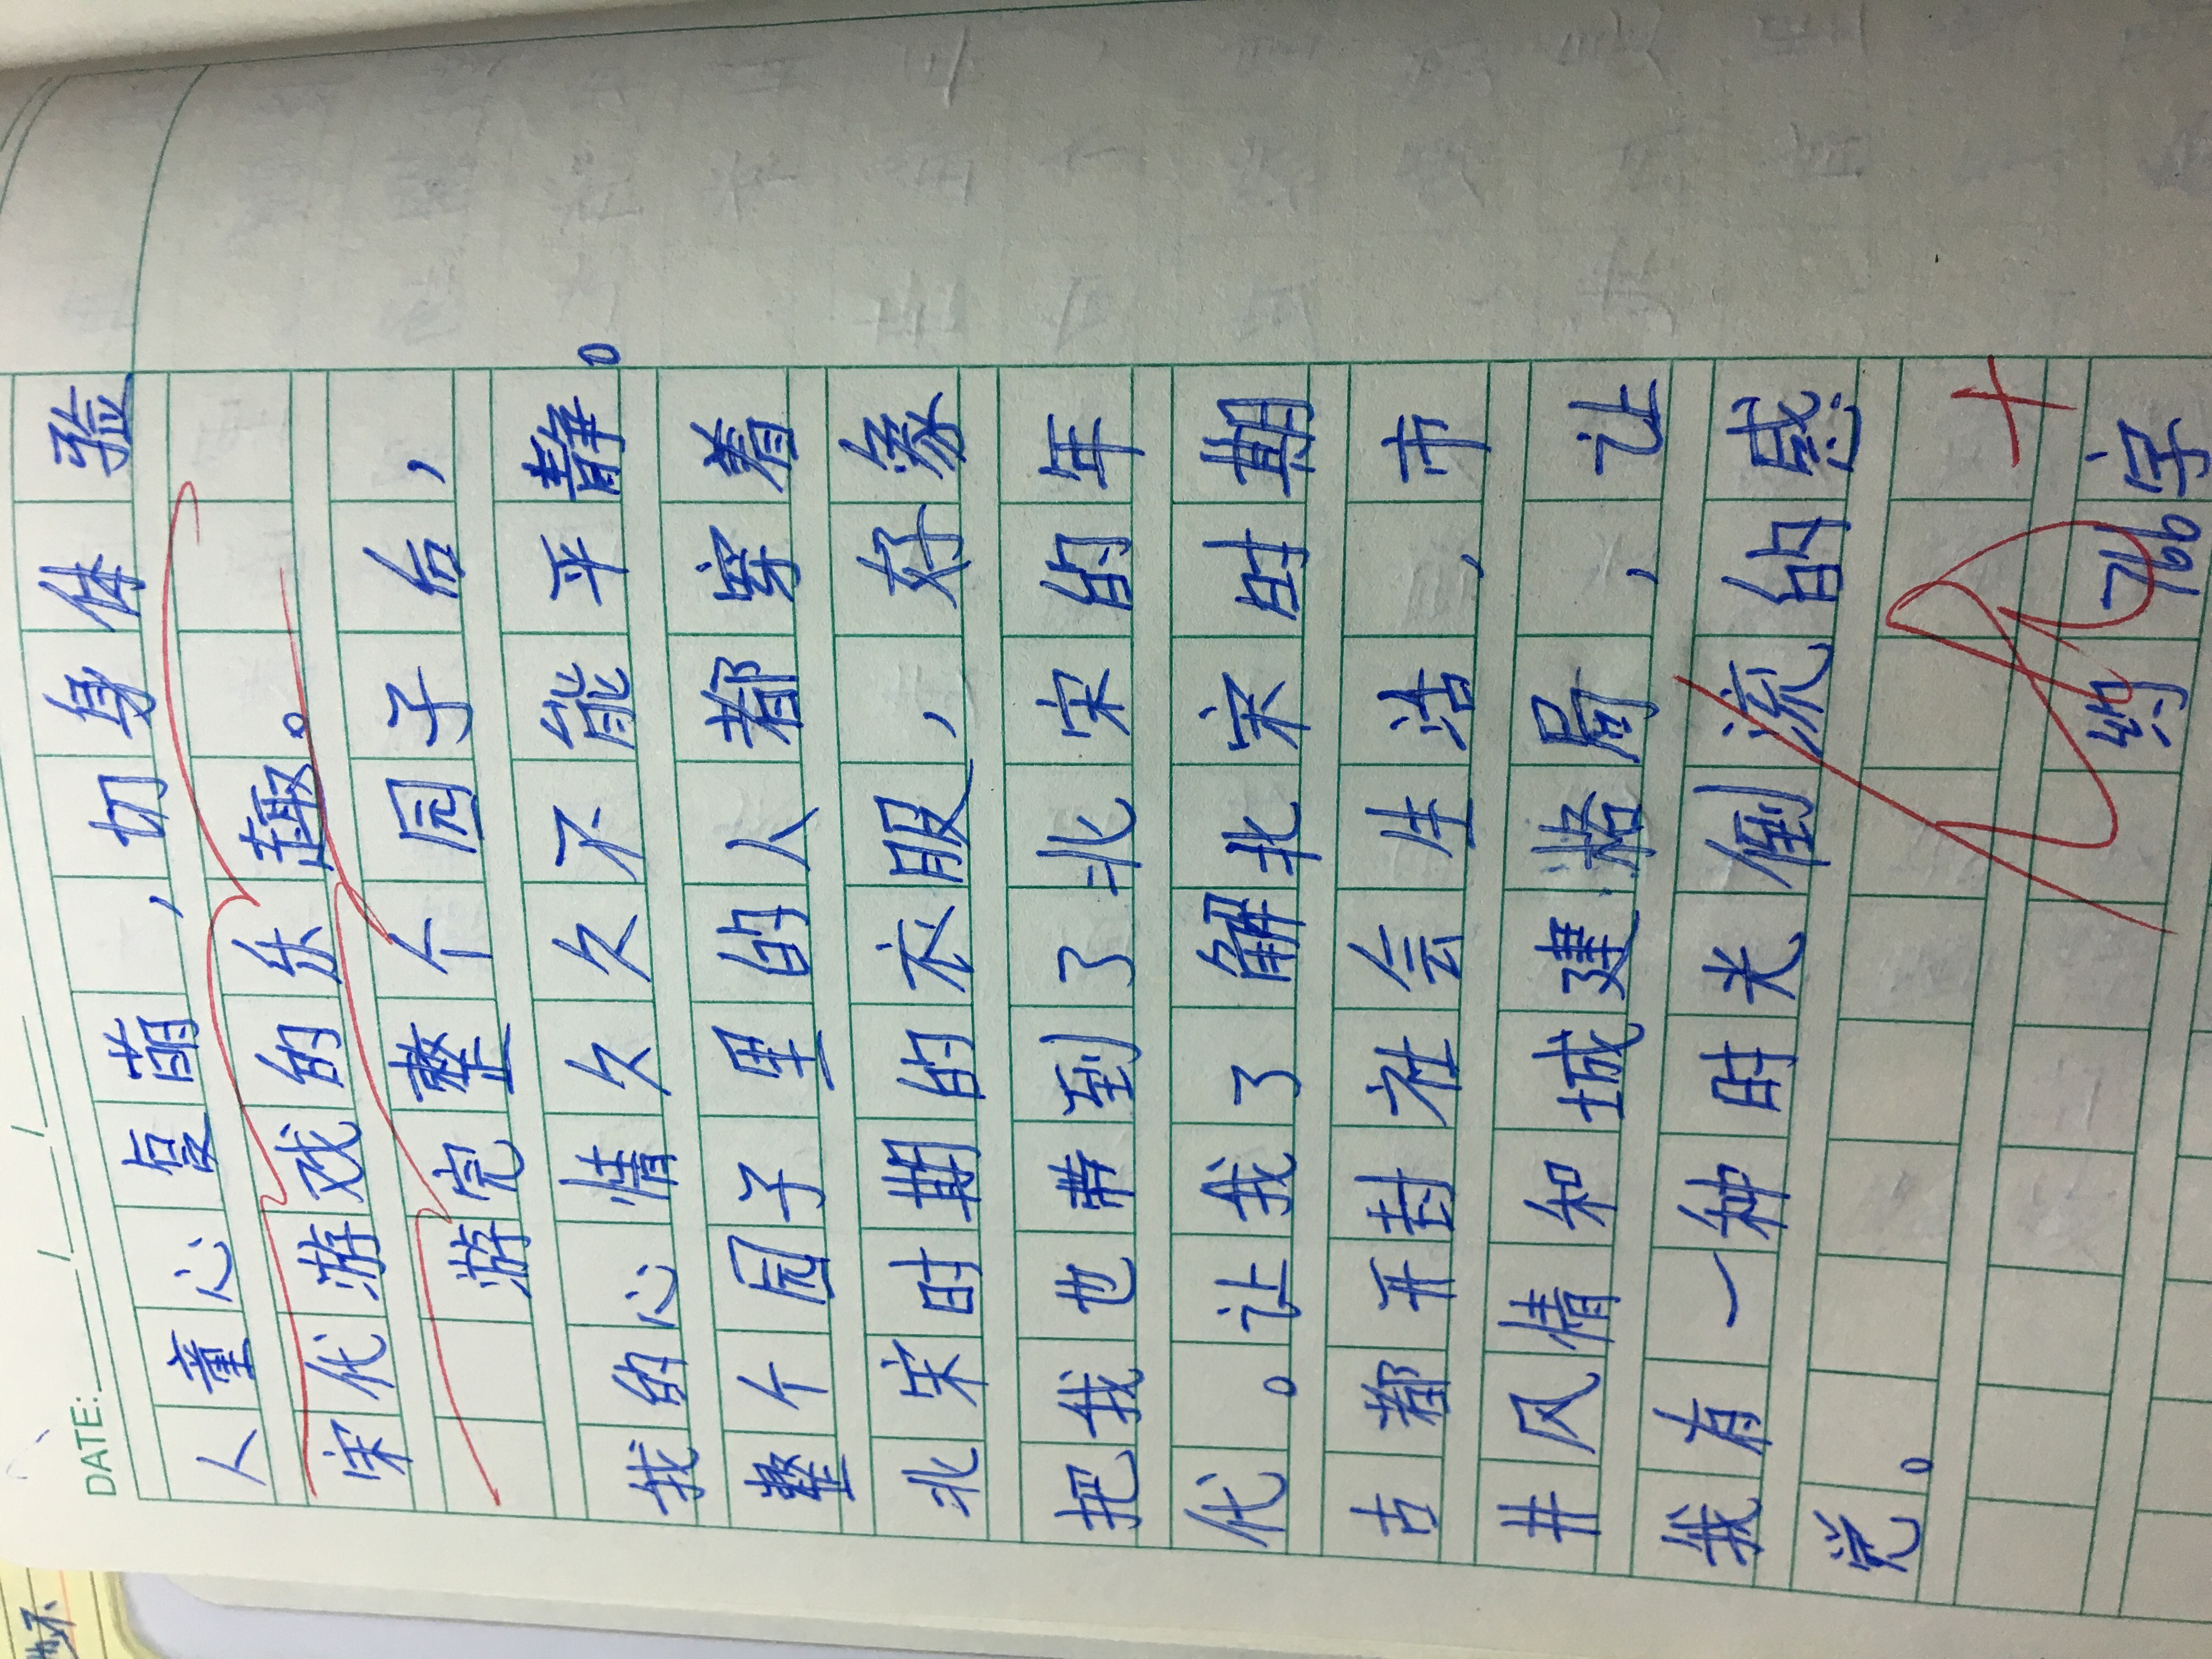 DATE:
人童心复萌，切身体验
宋代游戏的乐趣。
游完整个园子后，
我的心情久久不能平静。
整个园子里的人都穿着
北宋时期的衣服，好像
把我也带到了北宋的年
代。让我了解北宋时期
古都开封社会生活，市
井风情和城建格局，让
我有一种时光倒流的感
觉。
约766字